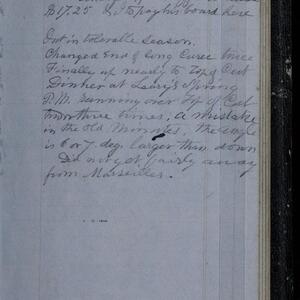 $17.25 & to pay his board here
Out in tolerable season.
Changed End of Long Curve twice
Finally up nearly to top of Cut
Dinner at Spring
P.M. running over top of Cut
two or three times, a mistake
in the old Minutes, the angle
is 6 or 7 deg. larger than down
Do not get fairly away
from Marseilles.